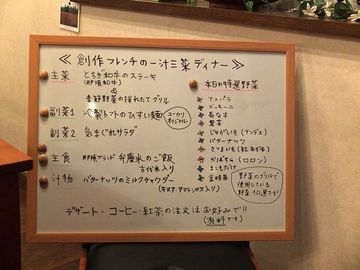 ≪創作フレンチの一汁三菜ディナー≫
主菜 とちぎ和牛のステーキ
&
季節野菜の採れたてグリル
副菜1 冷製トマトのひすい麺
ユーカリオリジナル
副菜2 気まぐれサラダ
主食 弁慶米のご飯
古代米入り
汁物 バターナッツのミルクチャウダー
(キヌア・アマランサス入り)
デザート・コーヒー・紅茶の注文はお好みで!!
(有料です)
本日の特選野菜
アスパラ
ズッキーニ
長なす
じゃがいも(アンデス)
バターナッツ
さつまいも(紅あずま)
かぼちゃ(ロロン)
まこもだけ
金時草
野菜のグリルで
使用している
野菜10選です!